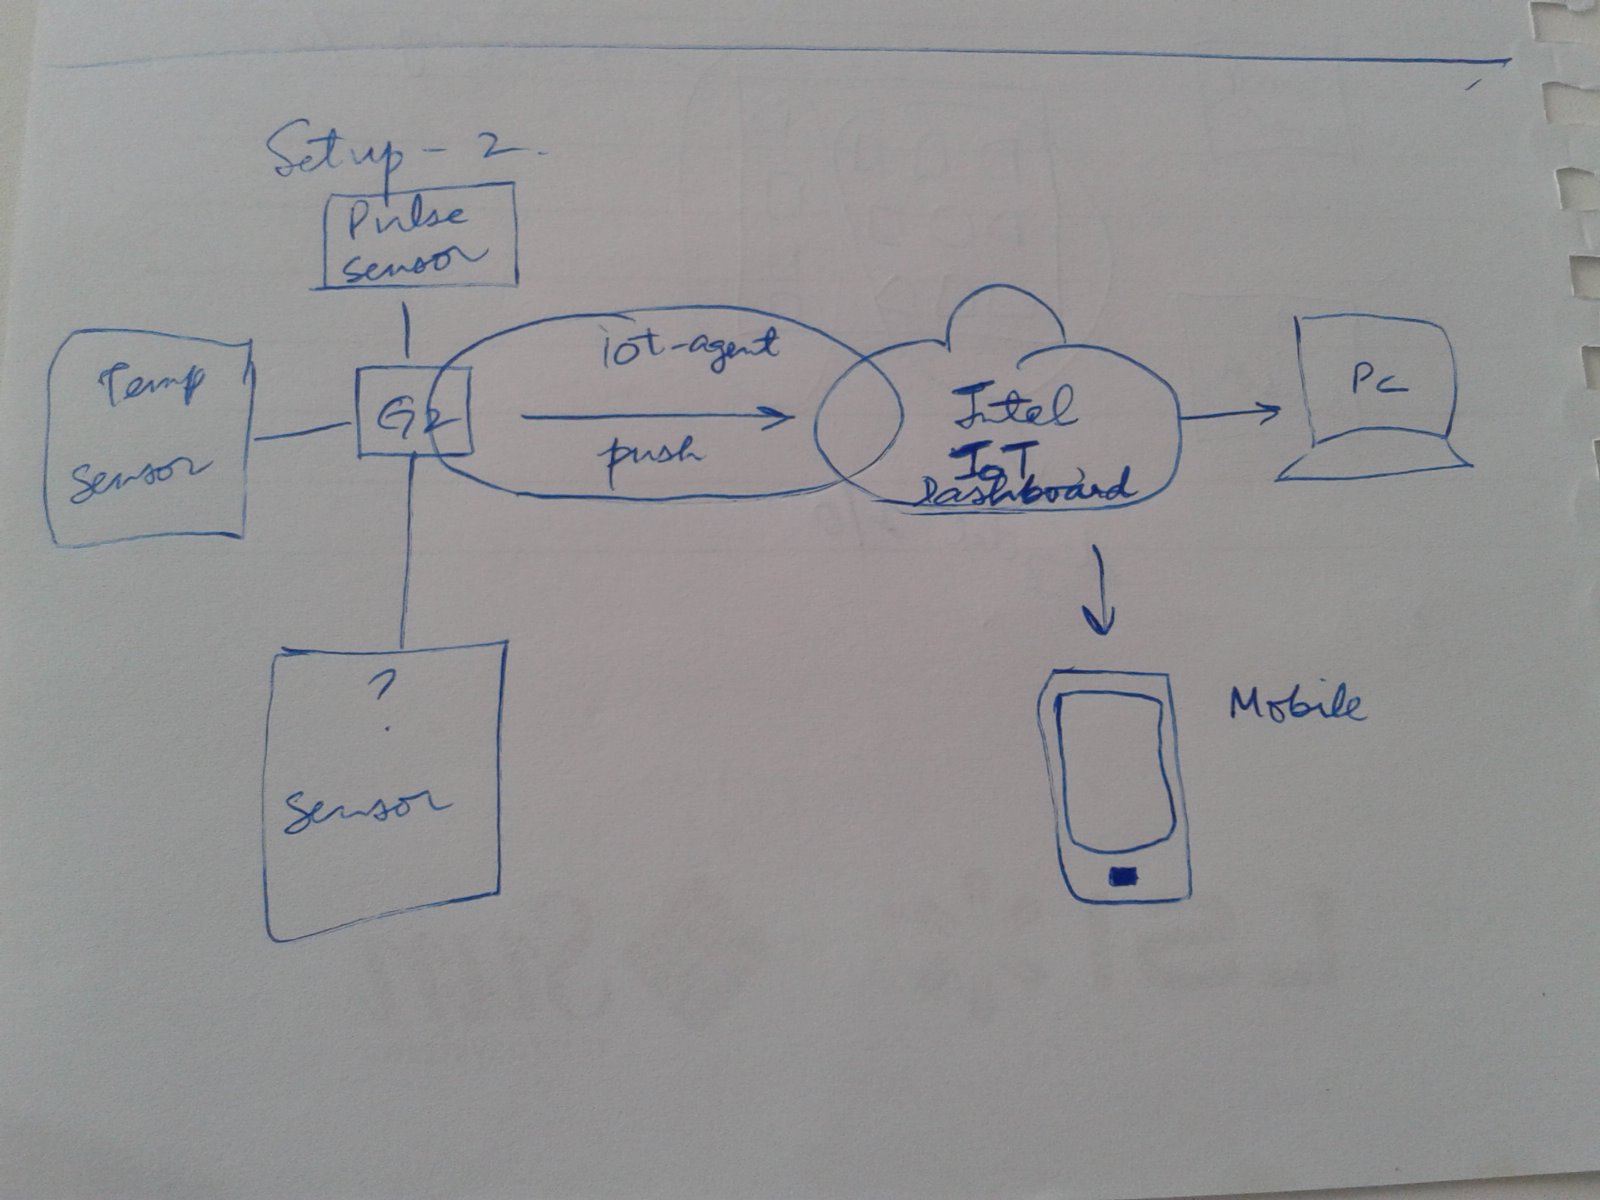 Setup - 2.
Pulse
sensor
Temp
Sensor
G2
iot-agent
push
Intel
IoT
Dashboard
PC
?
Sensor
Mobile